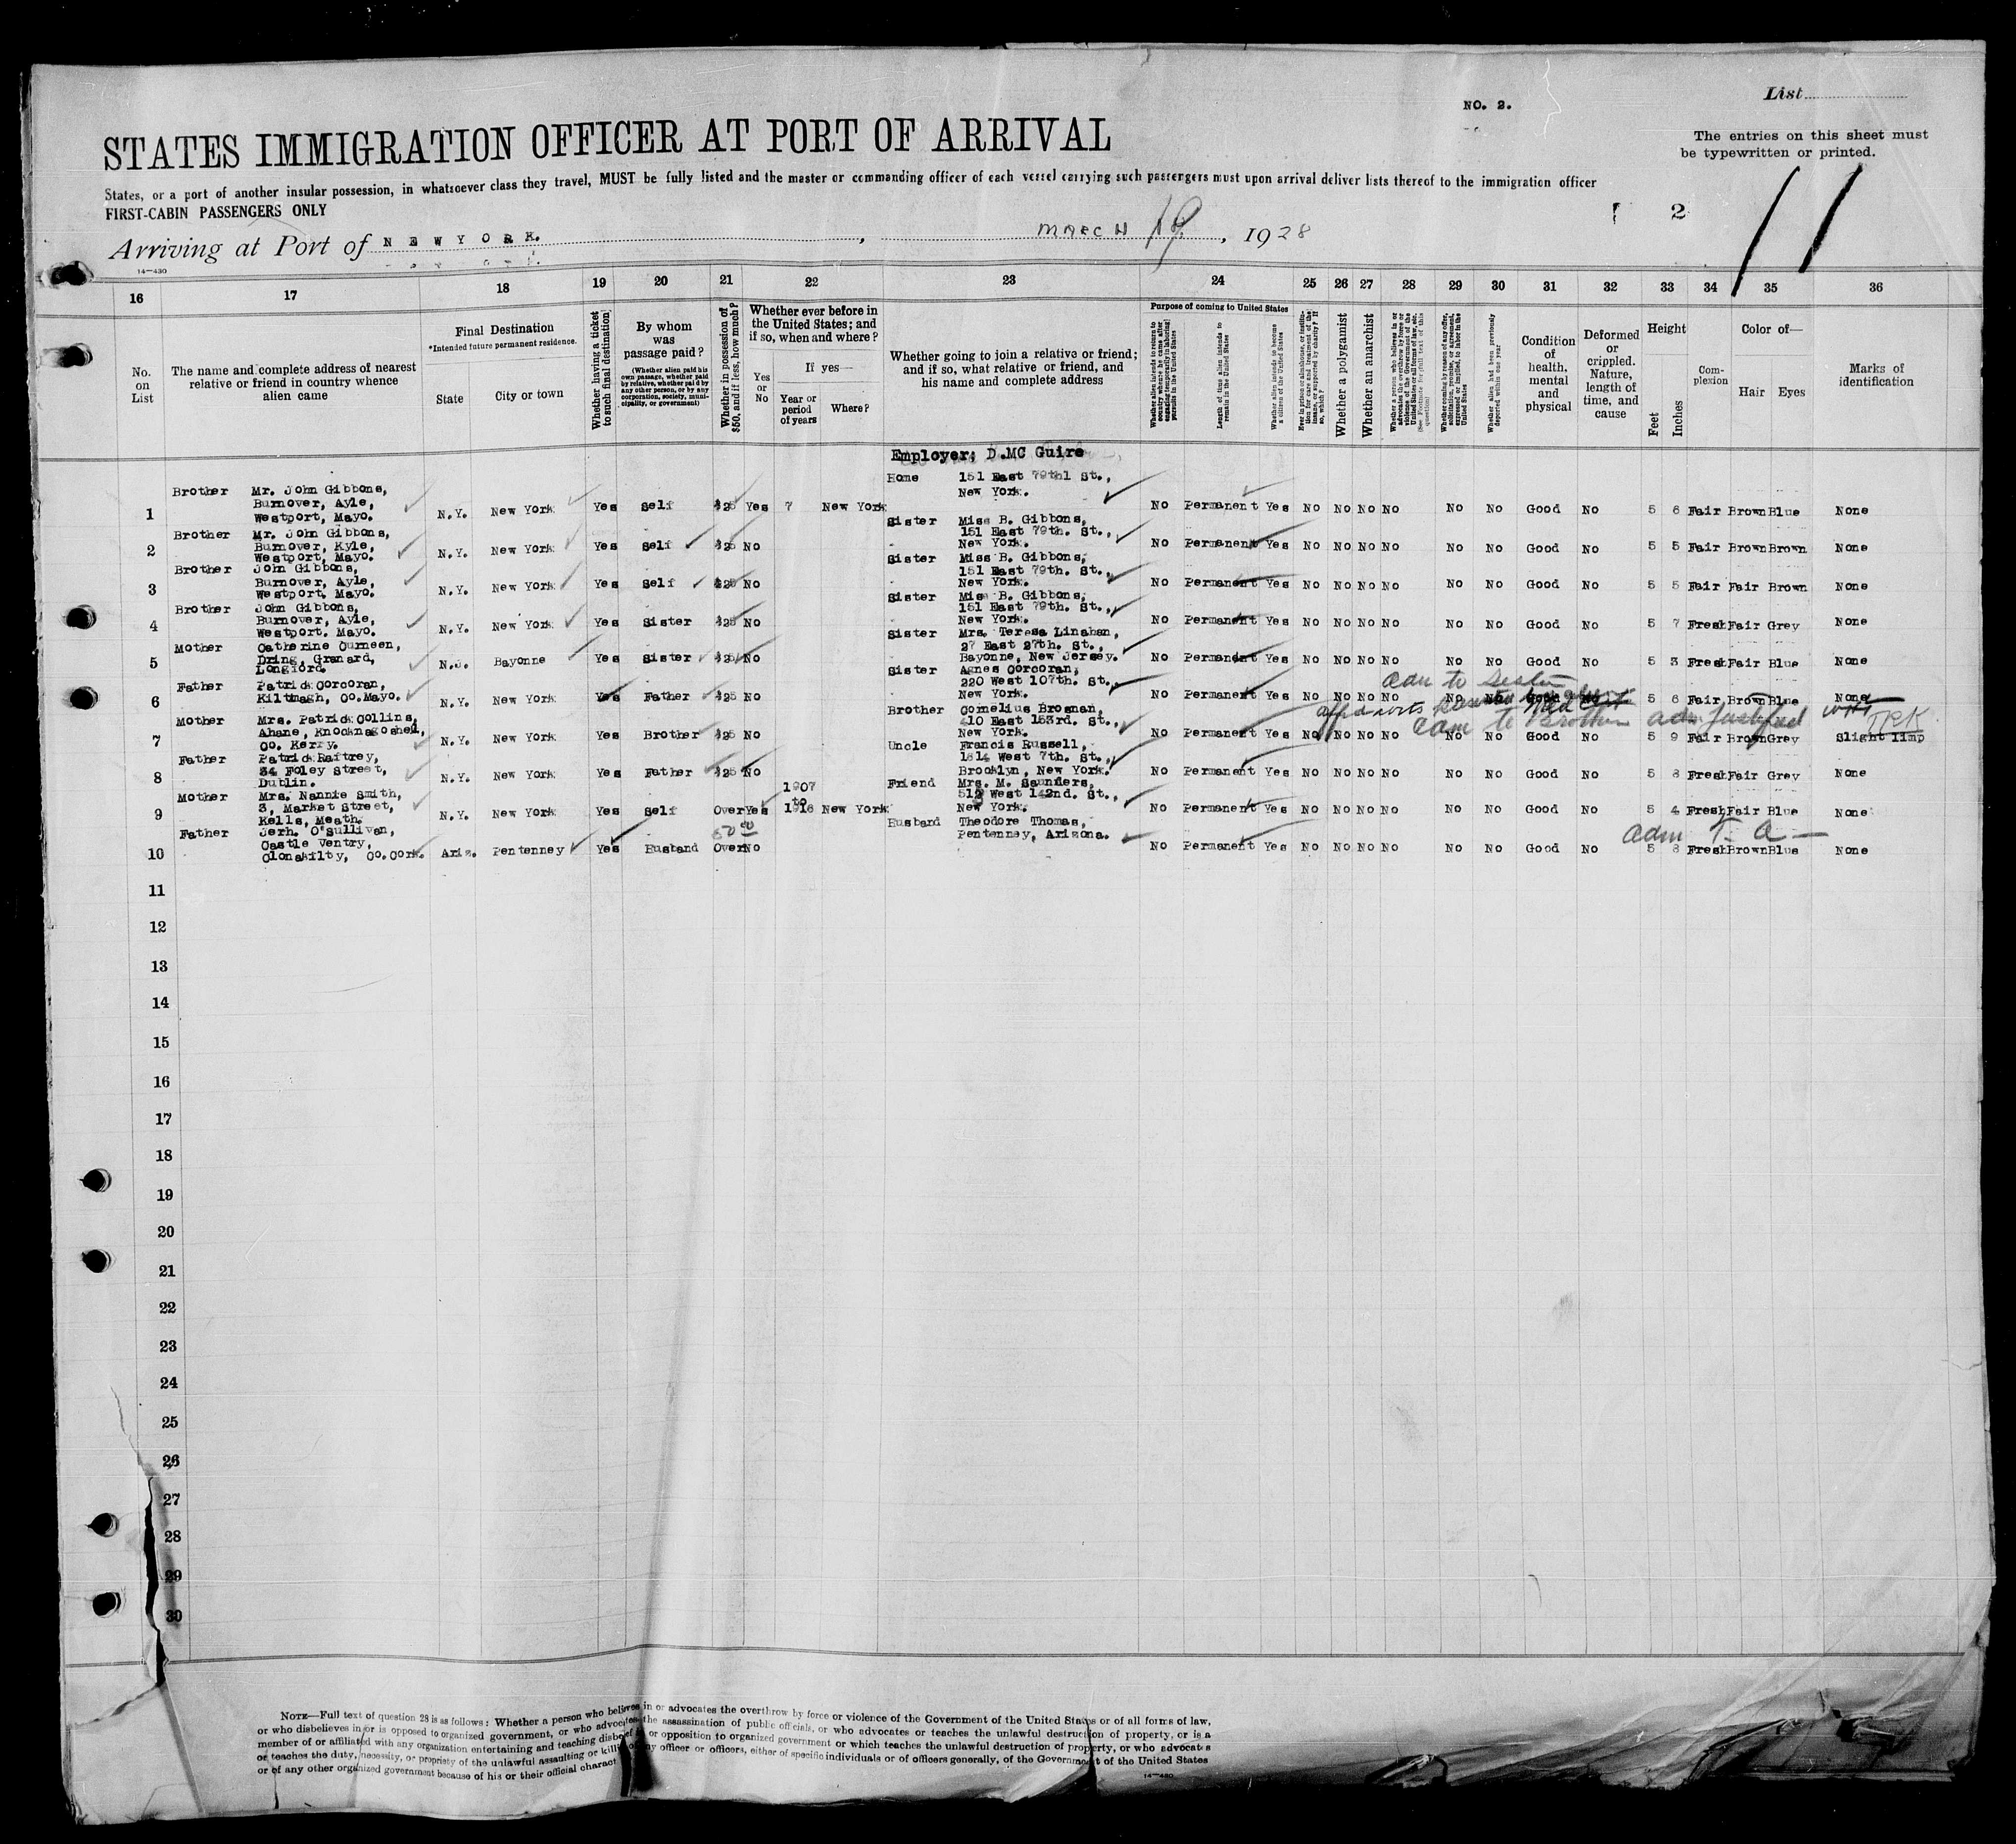 NO. 2.
List
STATES IMMIGRATION OFFICER AT PORT OF ARRIVAL
The entries on this sheet must
be typewritten or printed.
States, or a port of another insular possession, in whatsoever class they travel, MUST be fully listed and the master or commanding officer of each vessel carrying such passengers must upon arrival deliver lists thereof to the immigration officer
FIRST-CABIN PASSENGERS ONLY
2
11
Arriving at Port of NEW YORK. , MARCH 19, 1928
14—430
16 17 18 19 20 21 22 23 24 25 26 27 28 29 30 31 32 33 34 35 36
No.
on
List
The name and complete address of nearest
relative or friend in country whence
alien came
Final Destination
*Intended future permanent residence.
State City or town
Whether having a ticket
to such final destination
By whom
was
passage paid?
(Whether alien paid his
own passage, whether paid
by relative, whether paid by
any other person, or by any
corporation, society, muni-
cipality, or government)
Whether in possession of
$50, and if less, how much?
Whether ever before in
the United States; and
if so, when and where?
Yes
or
No
If yes—
Year or
period
of years
Where?
Whether going to join a relative or friend;
and if so, what relative or friend, and
his name and complete address
Purpose of coming to United States
Whether alien intends to return to
country whence he came after
engaging temporarily in laboring
pursuits in the United States
Length of time alien intends to
remain in the United States
Whether alien intends to become
a citizen of the United States
Ever in prison or almshouse, or institu-
tion for care and treatment of the
insane, or supported by charity? If
so, which?
Whether a polygamist
Whether an anarchist
Whether a person who believes in or
advocates the overthrow by force or
violence of the Government of the
United States or all forms of law, etc.
(See Footnote for full text of this
question)
Whether coming by reason of any offer,
solicitation, promise, or agreement,
expressed or implied, to labor in the
United States
Whether alien had been previously
deported within one year
Condition
of
health,
mental
and
physical
Deformed
or
crippled.
Nature,
length of
time, and
cause
Height
Feet
Inches
Com-
plexion
Color of—
Hair Eyes
Marks of
identification
Employer; D.MC Guire
1 Brother Mr. John Gibbons,
Burnover, Ayle,
Westport, Mayo. N.Y. New York Yes Self $25 Yes 7 New York Home 151 East 79thl St.,
New York. No Permanent Yes No No No No No No Good No 5 6 Fair Brown Blue None
2 Brother Mr. John Gibbons,
Burnover, Kyle,
Westport, Mayo. N.Y. New York Yes Self $25 No Sister Miss B. Gibbons,
151 East 79th. St.,
New York. No Permanent Yes No No No No No No Good No 5 5 Fair Brown Brown None
3 Brother John Gibbons,
Burnover, Ayle,
Westport, Mayo. N.Y. New York Yes Self $25 No Sister Miss B. Gibbons,
151 East 79th. St.,
New York. No Permanent Yes No No No No No No Good No 5 5 Fair Fair Brown None
4 Brother John Gibbons,
Burnover, Ayle,
Westport. Mayo. N.Y. New York Yes Sister $25 No Sister Miss B. Gibbons,
151 East 79th. St.,
New York. No Permanent Yes No No No No No No Good No 5 7 Fresh Fair Grey None
5 Mother Catherine Curneen,
Dring, Granard,
Longford. N.J. Bayonne Yes Sister $25 No Sister Mrs. Teresa Linahan,
27 East 27th. St.,
Bayonne, New Jersey. No Permanent Yes No No No No No No Good No 5 3 Fresh Fair Blue None
6 Father Patrick Corcoran,
Kiltmagh, Co.Mayo. N.Y. New York Yes Father $25 No Sister Agnes Corcoran,
220 West 107th. St.,
New York. No Permanent Yes No No No No No No Good No 5 6 Fair Brown Blue None
adm to Sister
7 Mother Mrs. Patrick Collins,
Ahane, Knocknagoshel,
Co. Kerry. N.Y. New York Yes Brother $25 No Brother Cornelius Brosnan,
410 East 153rd. St.,
New York. No Permanent Yes No No No No No No Good No 5 9 Fair Brown Grey Slight limp
adm to Brother
8 Father Patrick Raftrey,
34 Foley Street,
Dublin. N.Y. New York Yes Father $25 No Uncle Francis Russell,
1814 West 7th. St.,
Brooklyn, New York. No Permanent Yes No No No No No No Good No 5 8 Fresh Fair Grey None
9 Mother Mrs. Nannie Smith,
3, Market Street,
Kells, Meath. N.Y. New York Yes Self Over Yes 1907
to
1916 New York Friend Mrs. M. Saunders,
512 West 142nd. St.,
New York. No Permanent Yes No No No No No No Good No 5 4 Fresh Fair Blue None
10 Father Jerh. O'Sullivan,
Castle Ventry,
Clonakilty, Co.Cork. Ariz. Pentenney Yes Husband 50 00 Over No Husband Theodore Thomas,
Pentenney, Arizona. No Permanent Yes No No No No No No Good No 5 8 Fresh Brown Blue None
adm T. A—
11
12
13
14
15
16
17
18
19
20
21
22
23
24
25
26
27
28
29
30
NOTE—Full text of question 28 is as follows: Whether a person who believes in or advocates the overthrow by force or violence of the Government of the United States or of all forms of law,
or who disbelieves in or is opposed to organized government, or who advocates the assassination of public officials, or who advocates or teaches the unlawful destruction of property, or is a
member of or affiliated with any organization entertaining and teaching disbelief in or opposition to organized government or which teaches the unlawful destruction of property, or who advocates
or teaches the duty, necessity, or propriety of the unlawful assaulting or killing of any officer or officers, either of specific individuals or of officers generally, of the Government of the United States
or of any other organized government because of his or their official charact
14—430